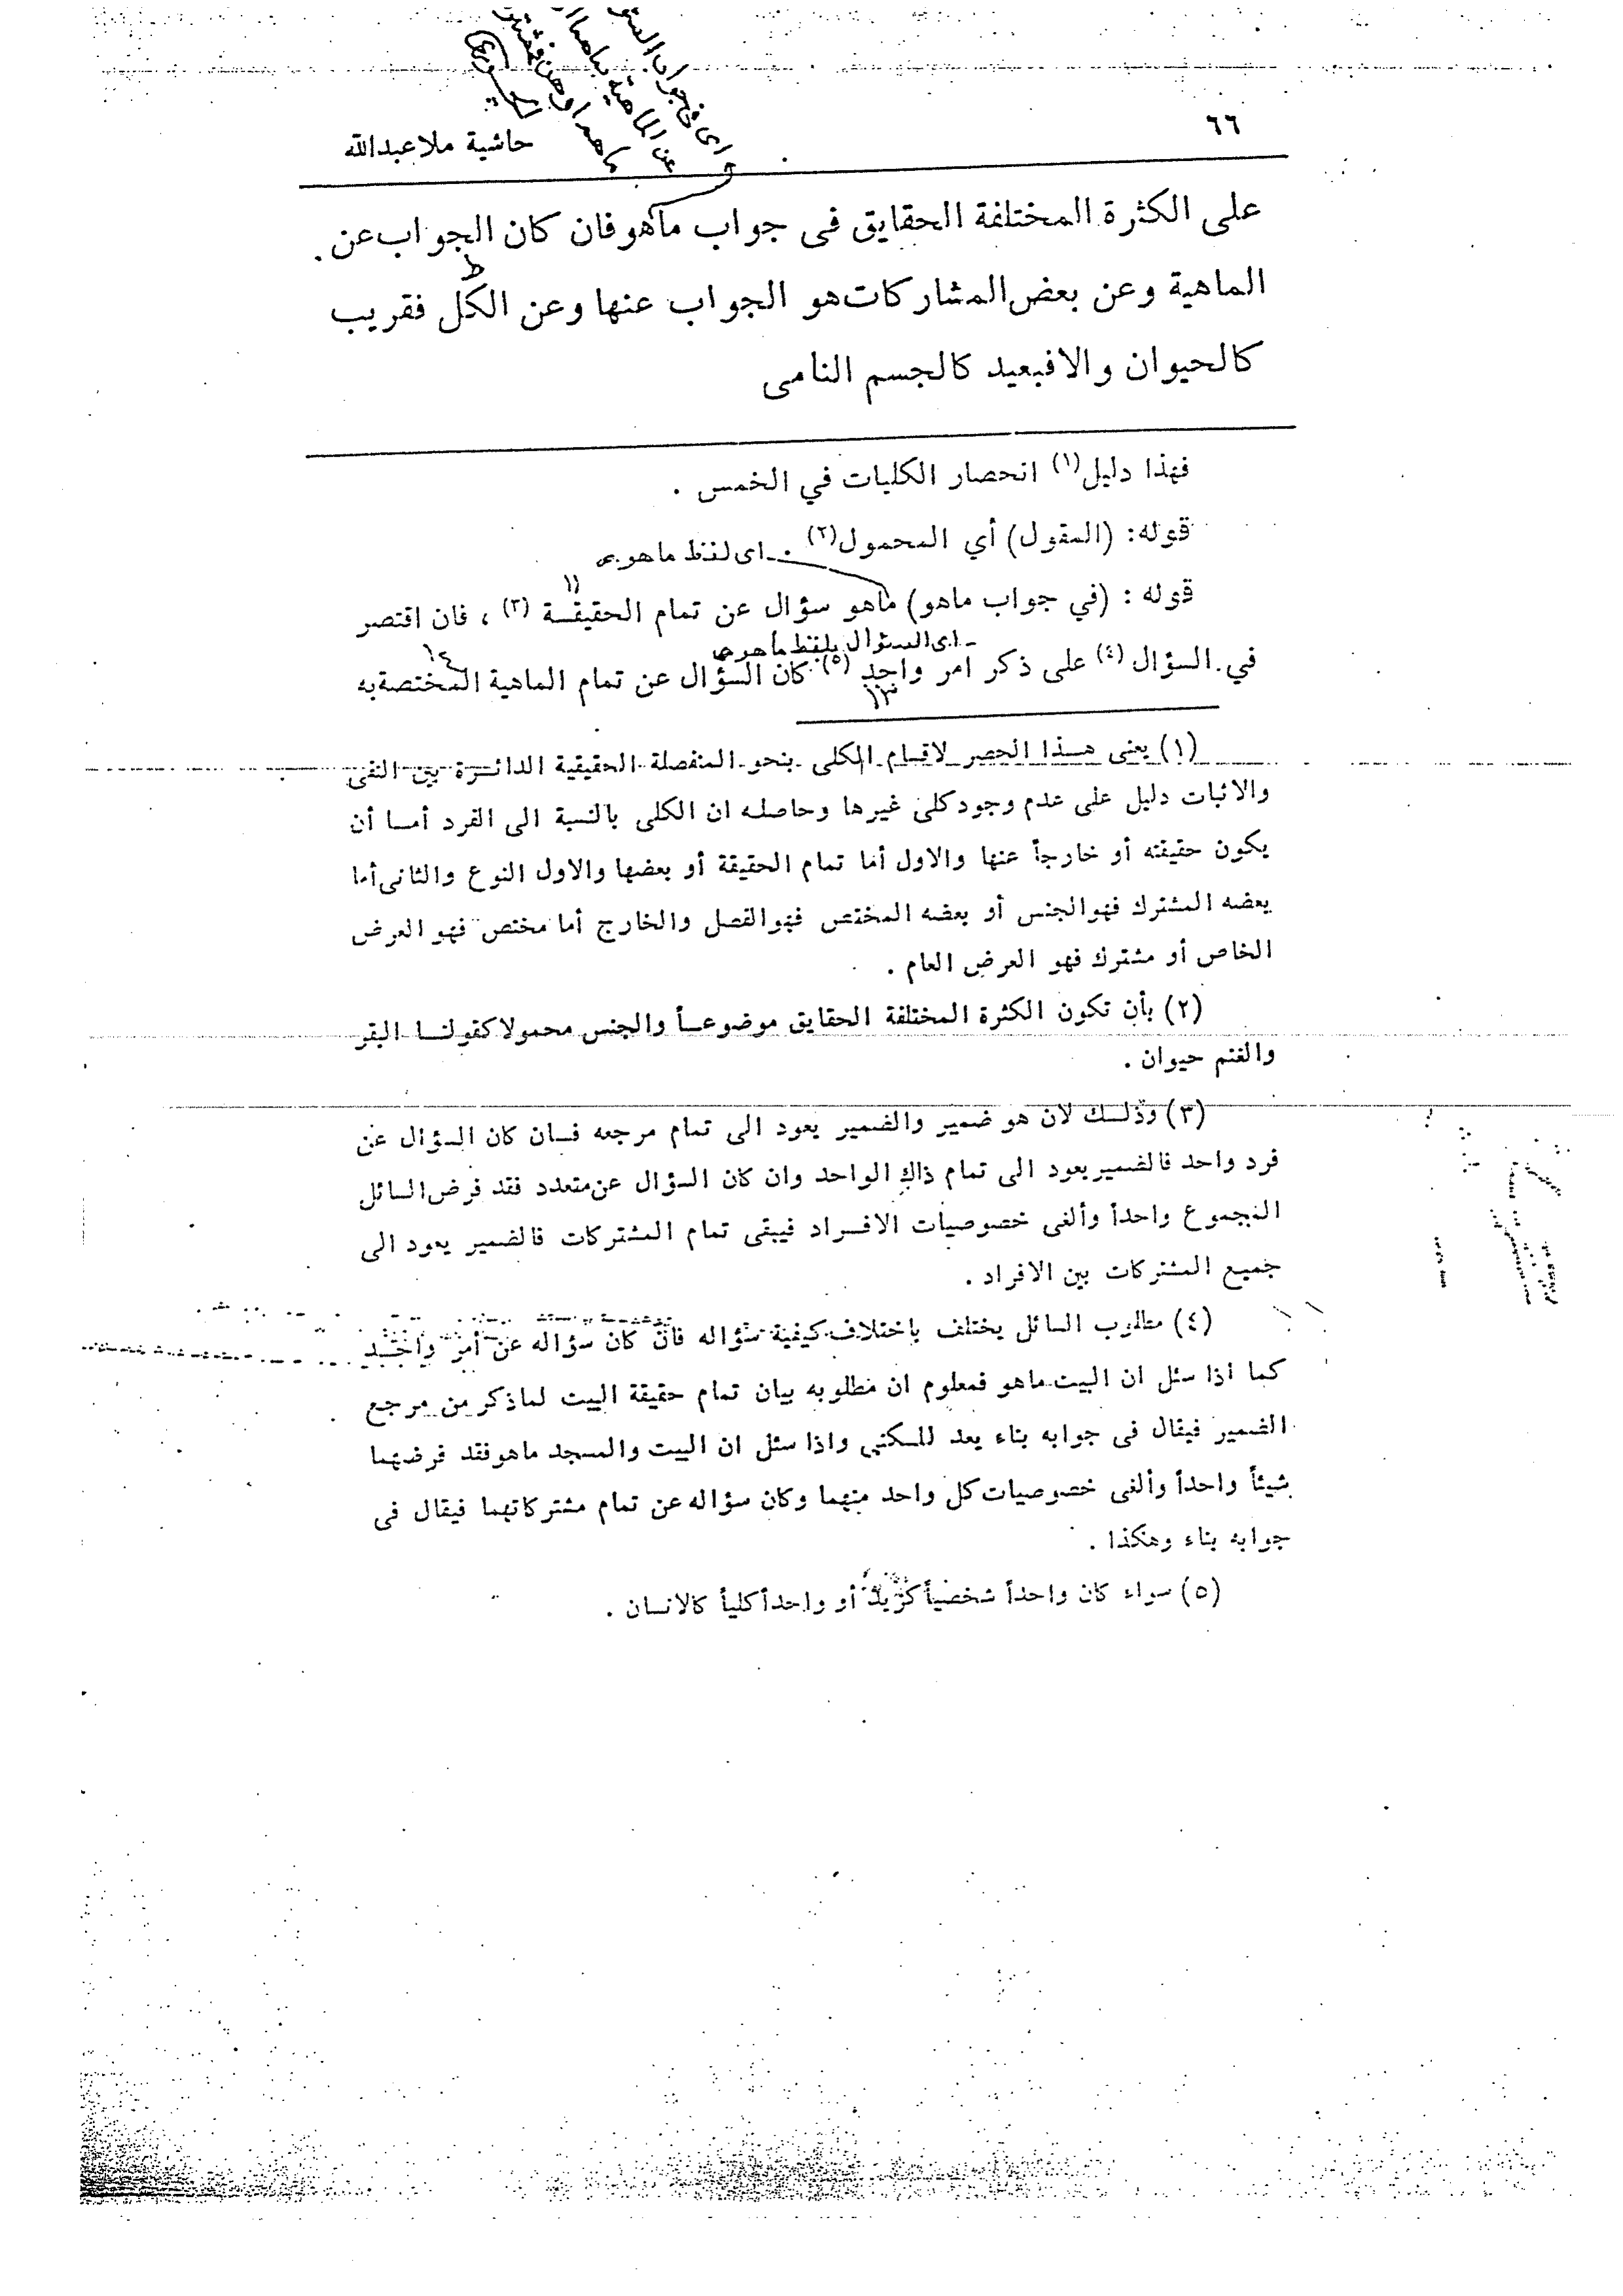 ٦٦
حاشية ملاعبدالله
على الكثرة المختلفة الحقايق فى جواب ماهو فان كان الجواب عن
الماهية وعن بعض المشاركات هو الجواب عنها وعن الكل فقريب
كالحيوان والا فبعيد كالجسم النامى
فهذا دليل(١) انحصار الكليات في الخمس .
قوله: (المقول) أي المحمول(٢) .
اى لفظ ماهو
قوله : (في جواب ماهو) ماهو سؤال عن تمام الحقيقـة (٣) ، فان اقتصر
اى السؤال بلفظ ماهو
في السؤال (٤) على ذكر امر واحد (٥) كان السؤال عن تمام الماهية المختصة به
(١) يعنى هـذا الحصر لاقسام الكلى بنحو المنفصلة الحقيقية الدائـرة بين النفى
والاثبات دليل على عدم وجود كلى غيرها وحاصله ان الكلى بالنسبة الى الفرد أمـا أن
يكون حقيقته أو خارجاً عنها والاول أما تمام الحقيقة أو بعضها والاول النوع والثانى أما
بعضه المشترك فهوالجنس أو بعضه المختص فهوالفصل والخارج أما مختص فهو العرض
الخاص أو مشترك فهو العرض العام .
(٢) بأن تكون الكثرة المختلفة الحقايق موضوعـاً والجنس محمولا كقولنـا البقر
والغنم حيوان .
(٣) وذلـك لان هو ضمير والضمير يعود الى تمام مرجعه فـان كان السؤال عن
فرد واحد فالضمير يعود الى تمام ذاك الواحد وان كان السؤال عن متعدد فقد فرض السائل
المجموع واحداً وألغى خصوصيات الافـراد فيبقى تمام المشتركات فالضمير يعود الى
جميع المشتركات بين الافراد .
(٤) مطلوب السائل يختلف باختلاف كيفية سؤاله فان كان سؤاله عن أمر واحـد
كما اذا سئل ان البيت ماهو فمعلوم ان مطلوبه بيان تمام حقيقة البيت لماذكر من مرجع
الضمير فيقال فى جوابه بناء يعد للسكنى واذا سئل ان البيت والمسجد ماهو فقد فرضهما
شيئاً واحداً وألغى خصوصيات كل واحد منهما وكان سؤاله عن تمام مشتركاتهما فيقال فى
جوابه بناء وهكذا .
(٥) سواء كان واحداً شخصياً كزيد أو واحداً كلياً كالانسان .